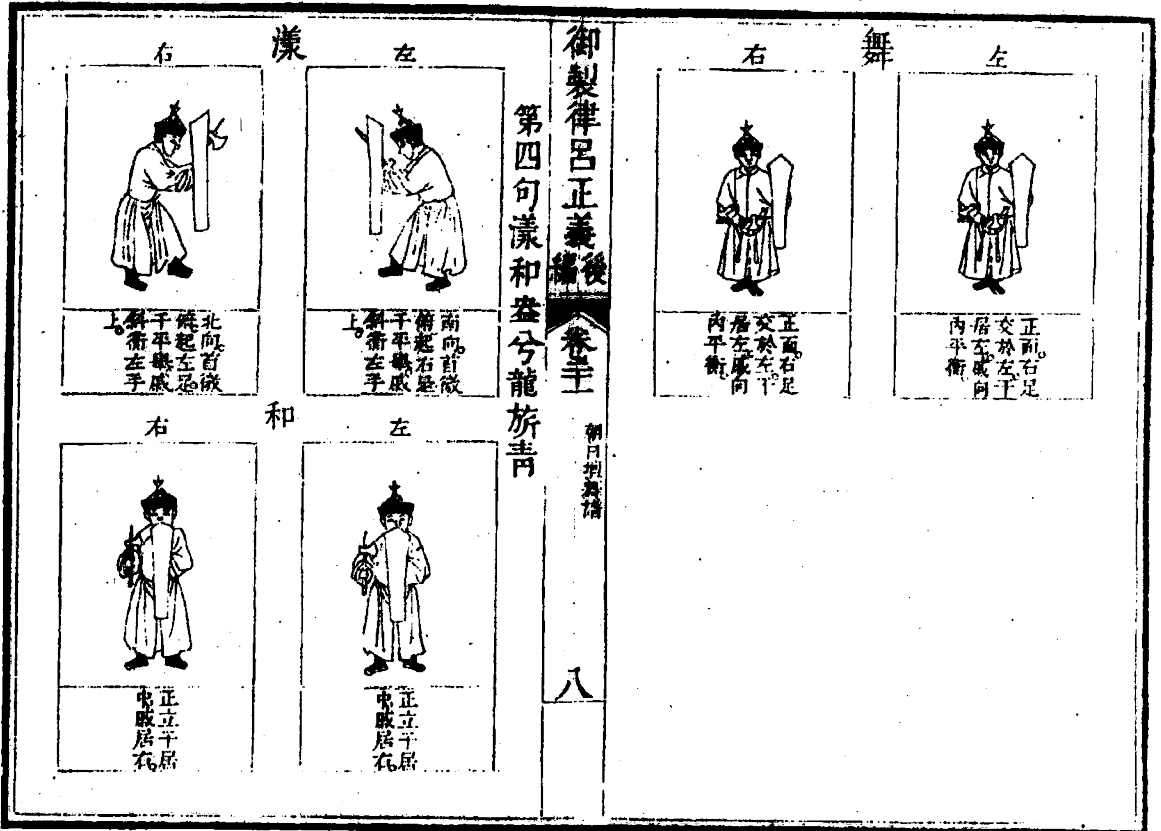 舞
左
正面。右足
交於左。干
居左。戚向
內平衡。
右
正面。右足
交於左。干
居左。戚向
內平衡。
御製律呂正義後編
卷三十
朝日壇舞譜
八
第四句瀁和盎兮龍旂青
瀁
左
南向。首微
俯。起右足。
干平舉。戚
斜衡左手
上。
右
北向。首微
俯。起左足。
干平舉。戚
斜衡左手
上。
和
左
正立。干居
中。戚居右。
右
正立。干居
中。戚居右。